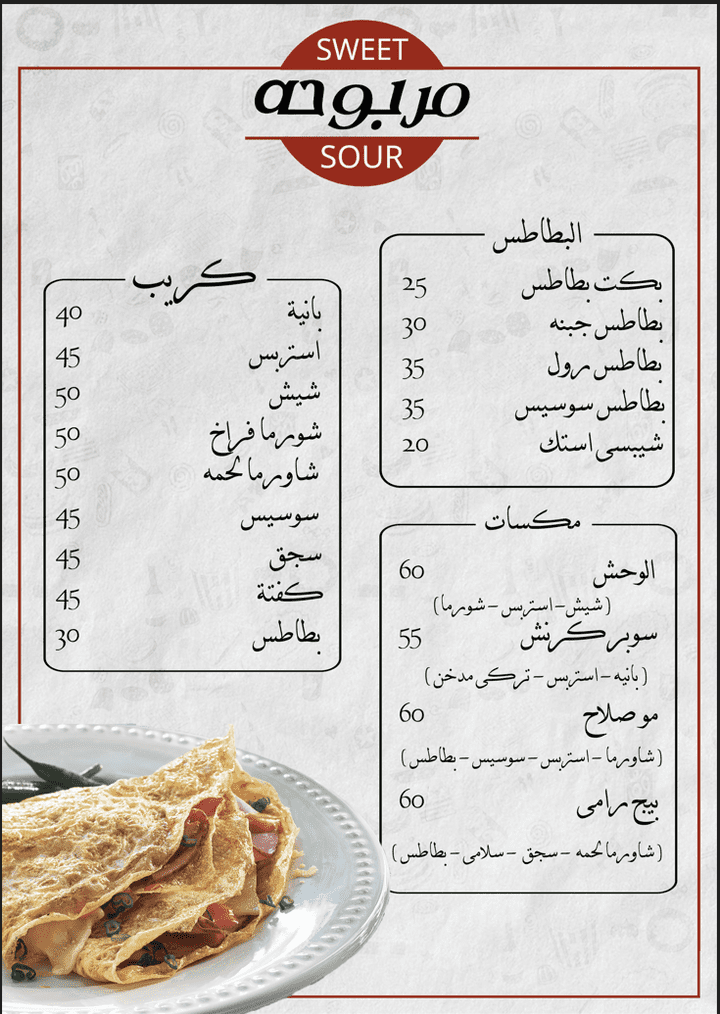 SWEET
مربوحه
SOUR
البطاطس
بكت بطاطس 25
بطاطس جبنه 30
بطاطس رول 35
بطاطس سوسيس 35
شيبسى استك 20
كريب
بانية 40
استربس 45
شيش 50
شورما فراخ 50
شاورما لحمه 50
سوسيس 45
سجق 45
كفتة 45
بطاطس 30
مكسات
الوحش 60
( شيش - استربس - شورما )
سوبر كرنش 55
( بانيه - استربس - تركى مدخن )
مو صلاح 60
( شاورما - استربس - سوسيس - بطاطس )
بيج رامى 60
( شاورما لحمه - سجق - سلامى - بطاطس )